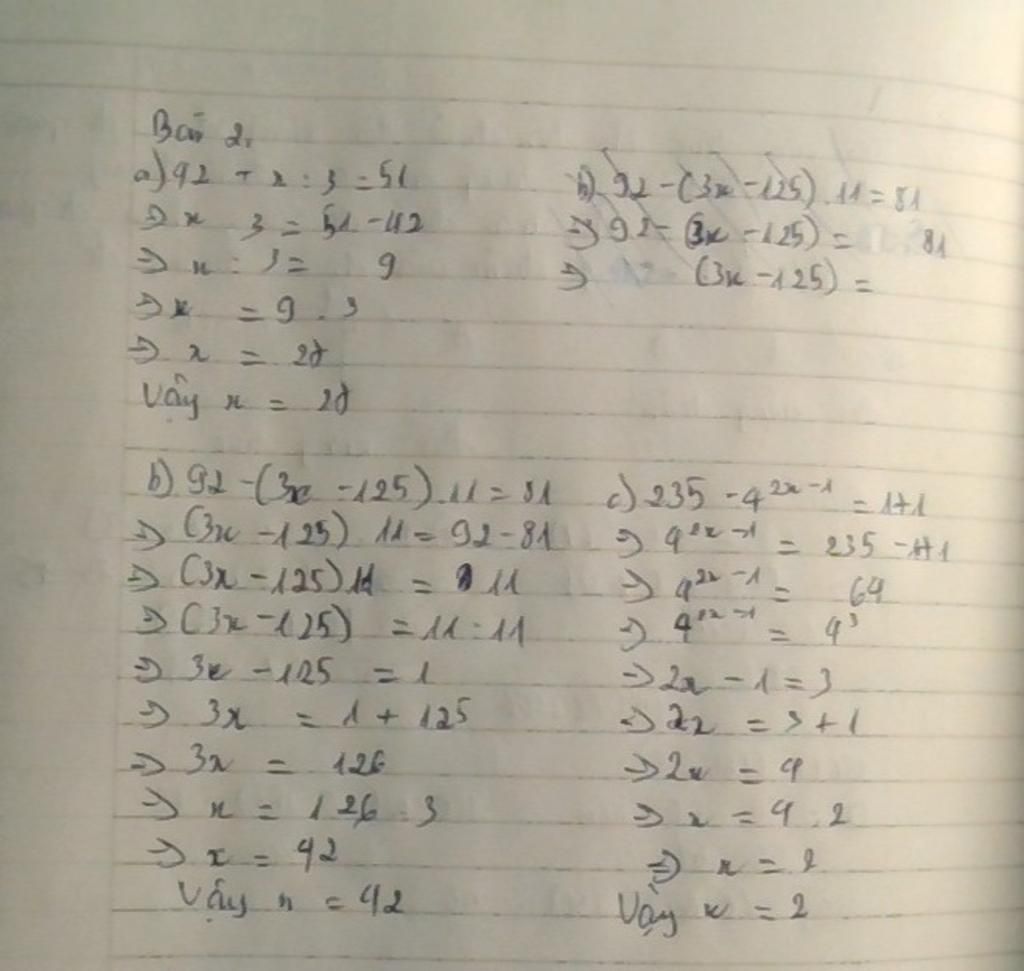 Bài 2.
a) 42 + x : 3 = 51
=> x 3 = 51 - 42
=> x : 3 = 9
=> x = 9 . 3
=> x = 27
Vậy x = 27
b) 92 - (3x - 125) . 11 = 81
=> 92 - (3x - 125) = 81
=> (3x - 125) =
b) 92 - (3x - 125) . 11 = 81
=> (3x - 125) 11 = 92 - 81
=> (3x - 125) 11 = 11
=> (3x - 125) = 11 : 11
=> 3x - 125 = 1
=> 3x = 1 + 125
=> 3x = 126
=> x = 126 : 3
=> x = 42
Vậy x = 42
c) 235 - 4^{2x - 1} = 171
=> 4^{2x - 1} = 235 - 171
=> 4^{2x - 1} = 64
=> 4^{2x - 1} = 4^3
=> 2x - 1 = 3
=> 2x = 3 + 1
=> 2x = 4
=> x = 4 : 2
=> x = 2
Vậy x = 2